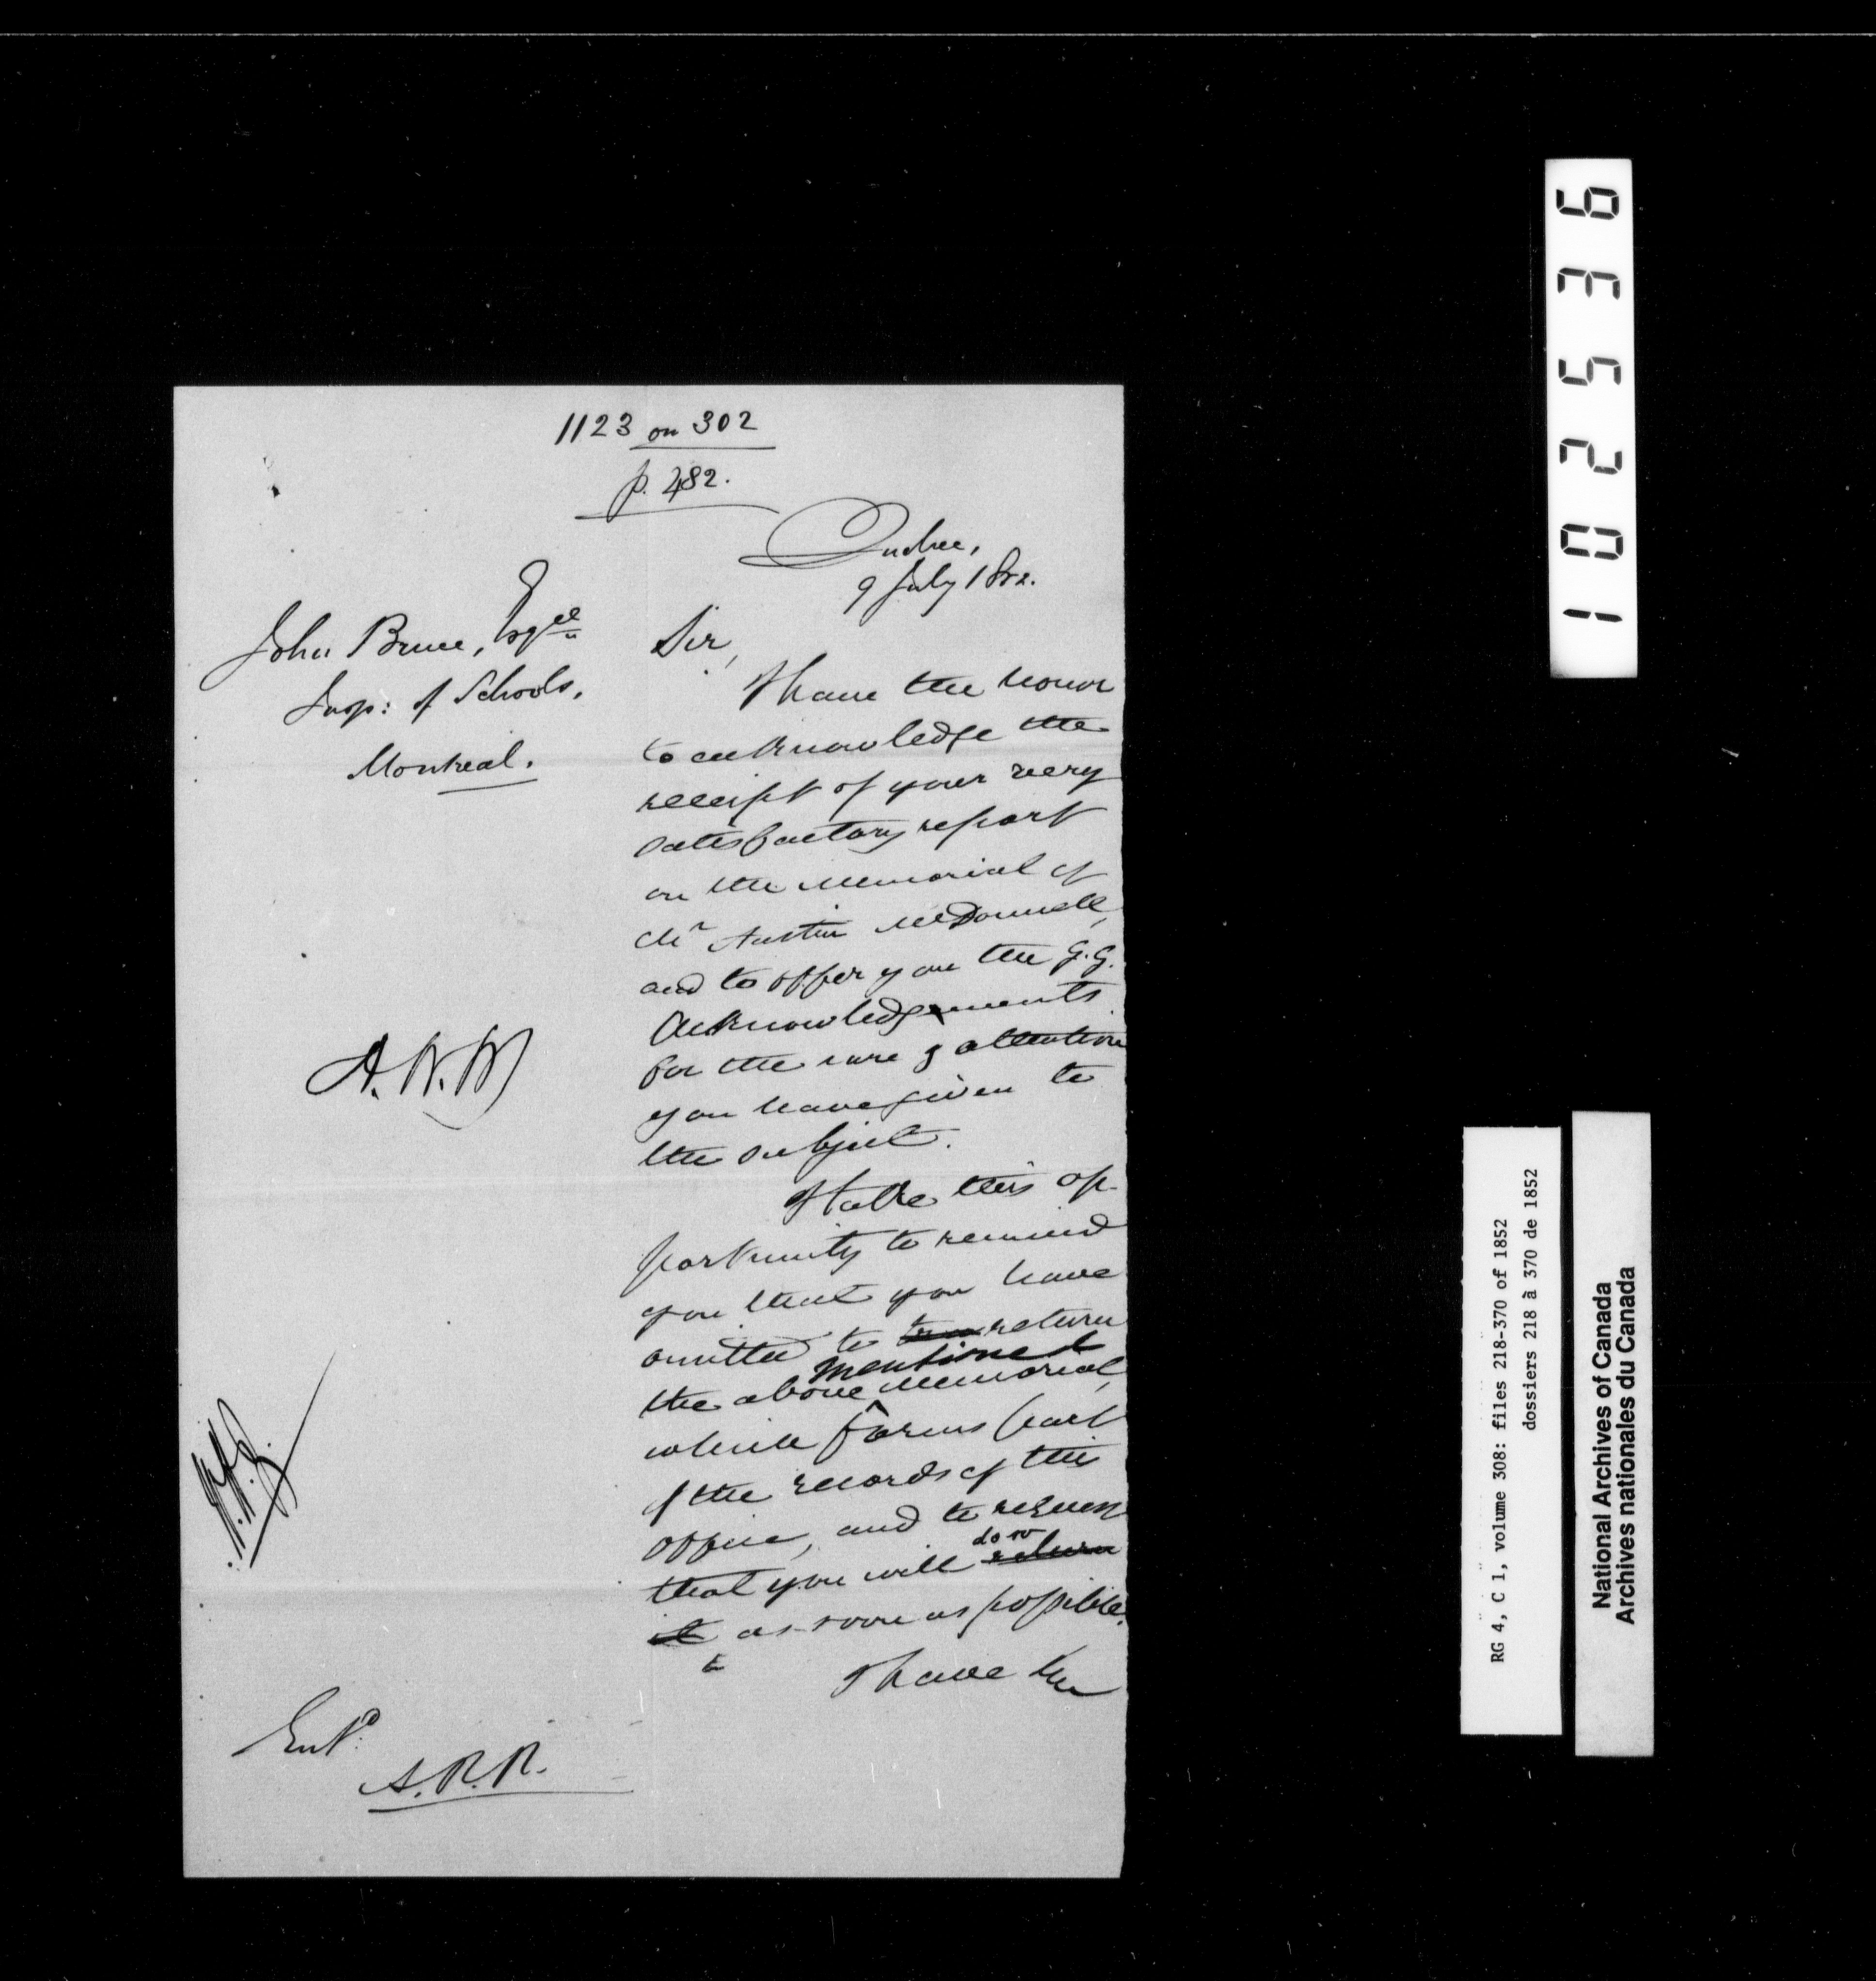 1123 on 302
p. 482.
Quebec,
9 July 1852.
John Bruce, Esqre
Insp: of Schools,
Montreal.
Sir,
I have the honor
to acknowledge the
receipt of your very
satisfactory report
on the Memorial of
Mr Austin McDonnell,
and to offer you the G.G.
Acknowledgements
for the care & attention
you have given to
the subject.
I take this op-
portunity to remind
you that you have
omitted to return
mentioned
the above memorial,
which forms part
of the records of this
office, and to request
do so
that you will return
it as soon as possible.
I have the
A.N.M
Entd.
A.R.R.
102536
RG 4, C 1, volume 308: files 218-370 of 1852
dossiers 218 à 370 de 1852
National Archives of Canada
Archives nationales du Canada